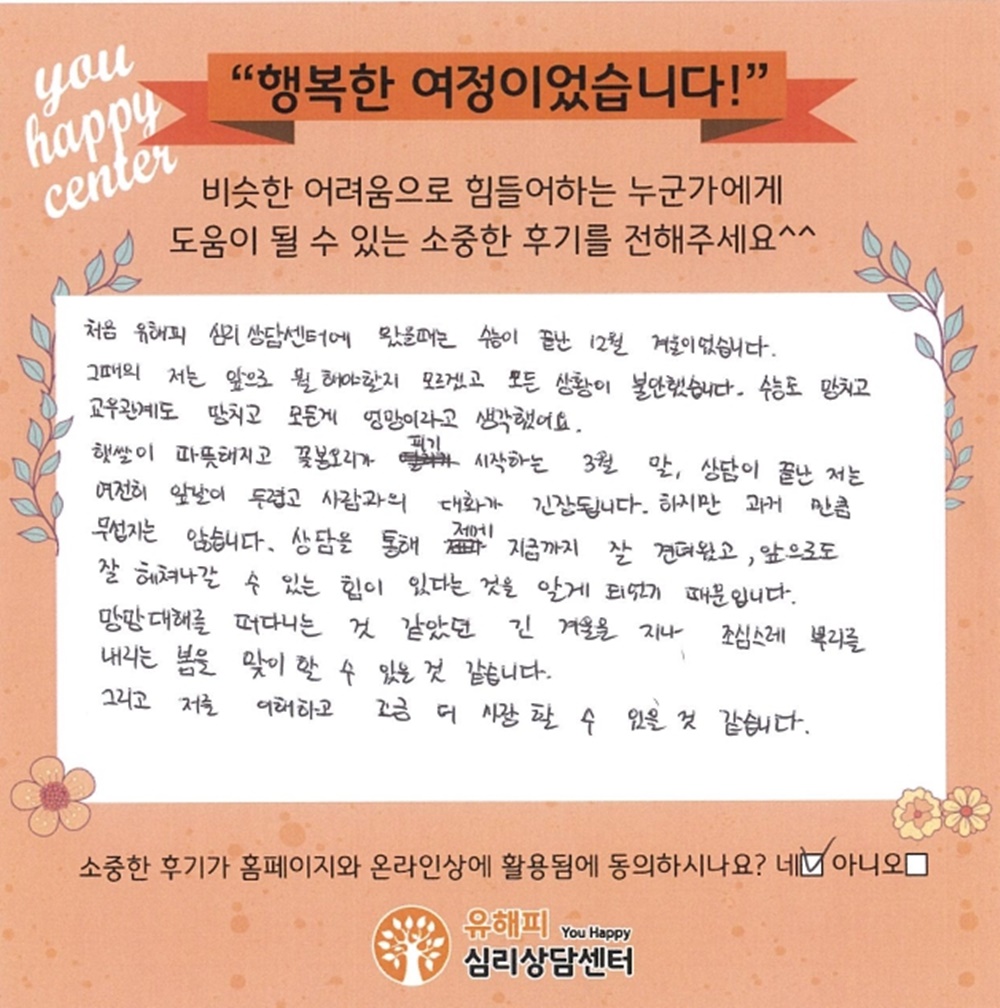 you
happy
center
“행복한 여정이었습니다!”
비슷한 어려움으로 힘들어하는 누군가에게
도움이 될 수 있는 소중한 후기를 전해주세요^^
처음 유해피 심리 상담센터에 왔을때는 수능이 끝난 12월 겨울이었습니다.
그때의 저는 앞으로 뭘 해야할지 모르겠고 모든 상황이 불안했습니다. 수능도 망치고
교우관계도 망치고 모든게 엉망이라고 생각했어요.
햇쌀이 따뜻해지고 꽃봉오리가 피기 시작하는 3월 말, 상담이 끝난 저는
여전히 앞날이 두렵고 사람과의 대화가 긴장됩니다. 하지만 과거 만큼
무섭지는 않습니다. 상담을 통해 제에 지금까지 잘 견뎌왔고, 앞으로도
잘 헤쳐나갈 수 있는 힘이 있다는 것을 알게 되었기 때문입니다.
망망대해를 떠다니는 것 같았던 긴 겨울을 지나 조심스레 뿌리를
내리는 봄을 맞이 할 수 있을 것 같습니다.
그리고 저를 이해하고 조금 더 사랑 할 수 있을 것 같습니다.
소중한 후기가 홈페이지와 온라인상에 활용됨에 동의하시나요? 네☑ 아니오☐
유해피 You Happy
심리상담센터